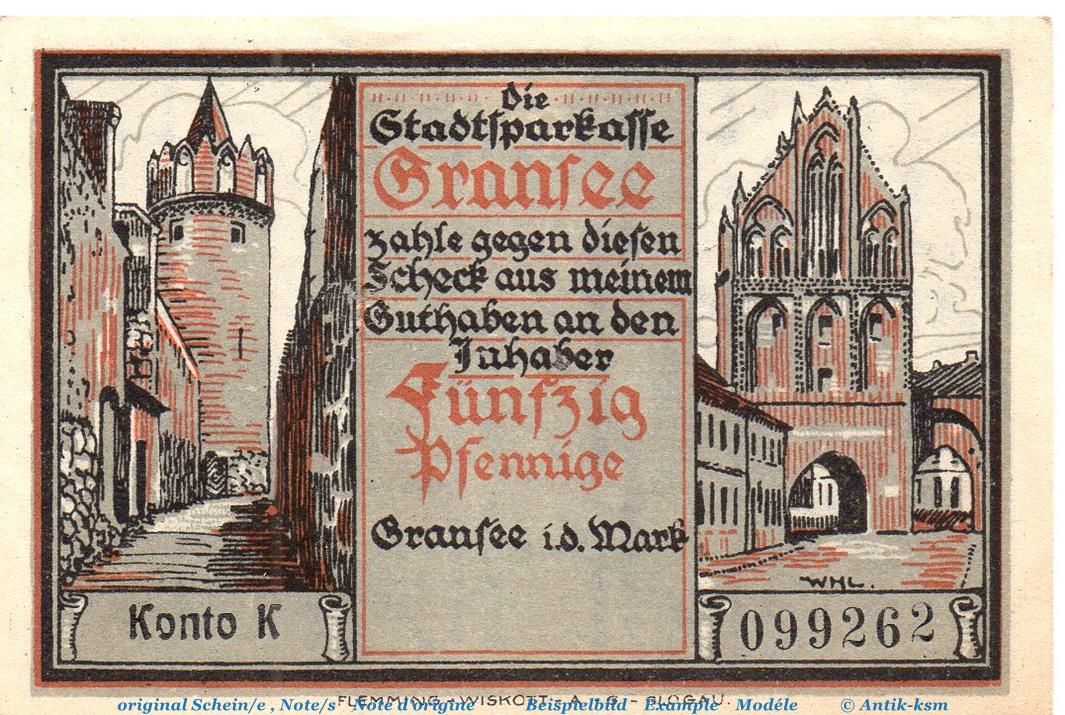 Die
Stadtsparkasse
Gransee
zahle gegen diesen
Scheck aus meinem
Guthaben an den
Inhaber
Fünfzig
Pfennige
Gransee i.d. Mark
WHL.
Konto K
099262
FLEMMING - WISKOTT - A. G. - GLOGAU.
original Schein/e , Note/s - Note d'origine Beispielbild - Example - Modéle © Antik-ksm